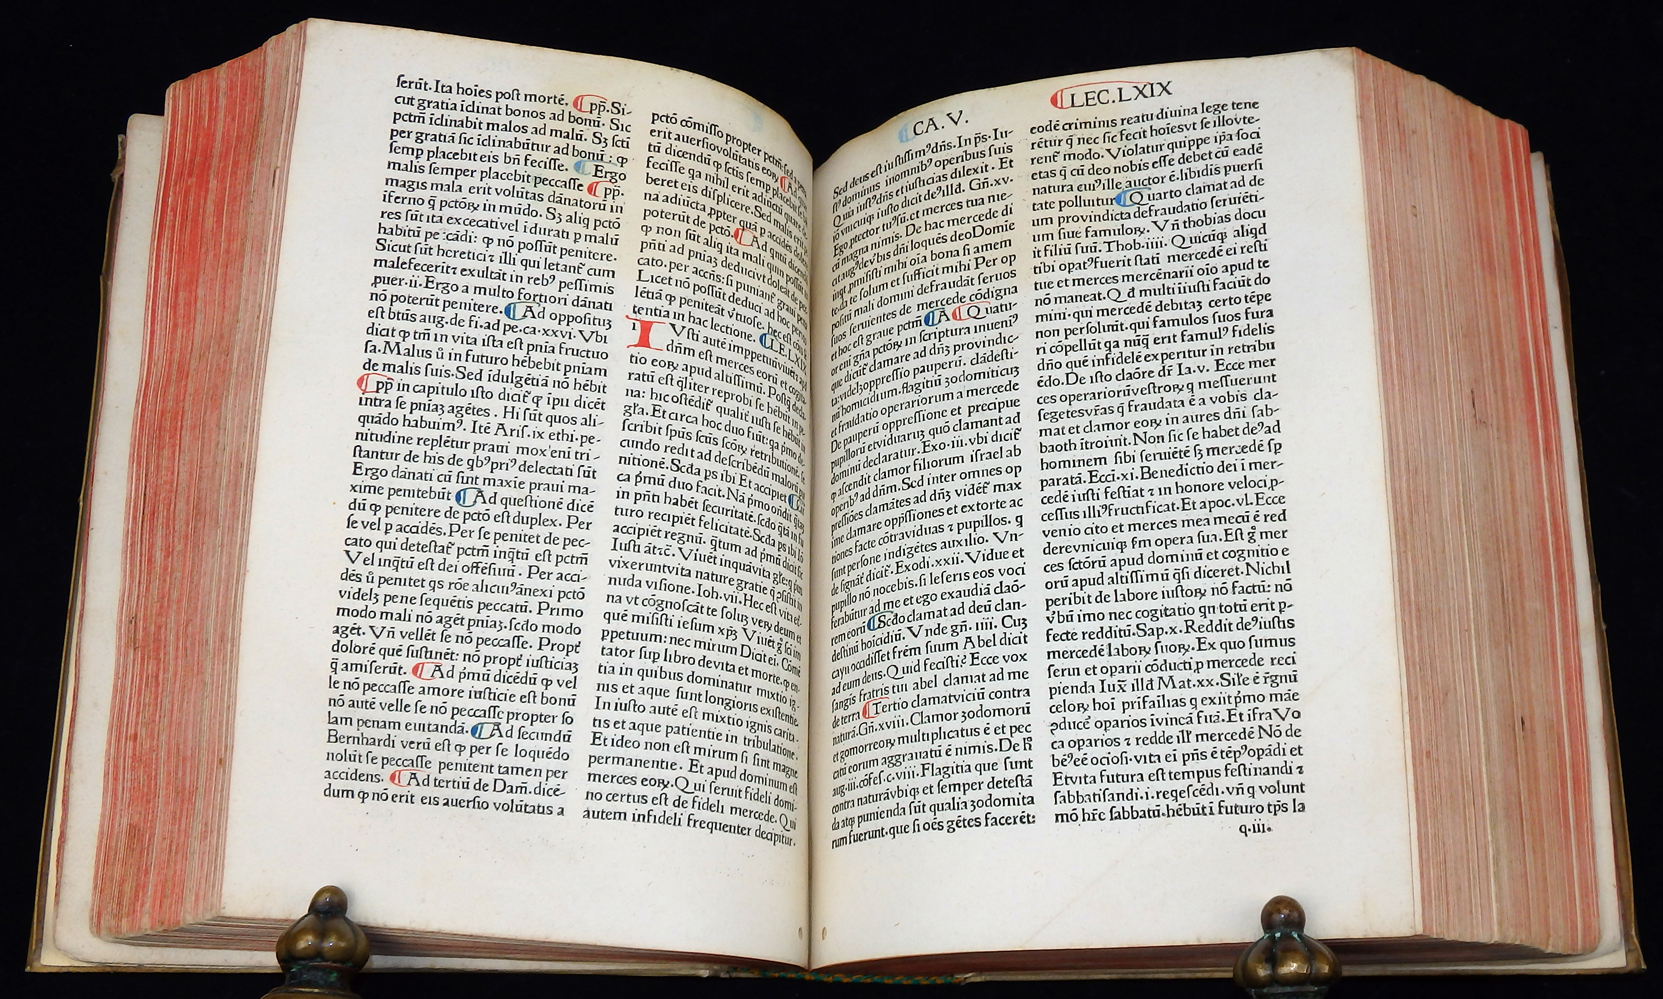 serūt. Ita hoīes post mortē. pp̄. Si-
cut gratia īclinat bonos ad bonū. Sic
pctm̄ īclinabit malos ad malū. Sʒ scti
per gratiā sic īclinabūtur ad bonū: ꝙ
semp placebit eis bn̄ fecisse. Ergo
malis semper placebit peccasse pp̄.
magis mala erit volūtas dānatorū in
iferno ꝗ pctōꝝ in mūdo. Sʒ aliꝗ pctō
res sūt ita excecati vel īdurati p malū
habitū ꝙ nō possūt penitere.
Sicut sūt heretici ⁊ illi qui letant᷑ cum
malefecerit ⁊ exultāt in rebꝰ pessimis
ꝓuer. ii. Ergo a multo fortiori dānati
nō poterūt penitere. Ad oppositū
est btūs aug. de fi. ad pe. ca. xxvi. Vbi
dicit ꝙ tm̄ in vita ista est pn̄ia fructuo
sa. Malus ū in futuro hēbebit pniam
de malis suis. Sed īdulgētiā nō hēbit
pp̄ in capitulo isto dicit᷑ ꝙ ipi dicēt
intra se pniaʒ agētes. Hi sūt quos ali-
quādo habuimꝰ. Itē Aris. ix ethi. pe-
nitudine replētur praui mox eni tri-
stantur de his de qbꝰ priꝰ delectati sūt
Ergo dānati cū sint maxie praui ma-
xime penitebūt Ad questionē dicē
dū ꝙ penitere de pctō est duplex. Per
se vel p accidēs. Per se penitet de pec-
cato qui detestat᷑ pctm̄ inꝗtū est pctm̄
Vel inꝗtū est dei offēsiuū. Per acci-
dēs ū penitet ꝗs rōe alicuiꝰ ānexi pctō
videlʒ pene sequētis peccatū. Primo
modo mali nō agēt pniaʒ. scdo modo
agēt. Vn̄ vellēt se nō peccasse. Propt᷑
dolorē quē sustinēt: nō propt᷑ iusticiaʒ
ꝗ̄ amiserūt. Ad pmū dicēdū ꝙ vel
le nō peccasse amore iusticie est bonū
nō autē velle se nō peccasse propter so
lam penam euitandā. Ad secundū
Bernhardi verū est ꝙ per se loquēdo
nolūt se peccasse penitent tamen per
accidens. Ad tertiū de Dam̄. dicē-
dum ꝙ nō erit eis auersio volūtatis a
pctō cōmisso propter pctm̄: sed
erit auersio volūtatis eoꝝ
tū dicendū ꝙ sctis semp placebit se
fecisse ꝗa nihil erit adiūctū quare de
beret eis displicere. Sed malis erit pe
na adiūcta ꝓpter quā p accidēs dolere
poterūt de pctō. Ad qntū dicendū
ꝙ non sūt aliꝗ ita mali quin possūt in
pn̄ti ad pniaʒ deduci vt doleāt de pec
cato. per accn̄s: si puniant᷑ graui pena
Licet nō possūt deduci ad hoc per vio
lētiā ꝙ peniteāt vtuose. hec
tentia in hac lectione. LE. LXIX
IVsti autē imppetuū viuēt: apd
dn̄m est merces eoꝝ et cogita
tio eoꝝ apud altissimū. Postꝗ̄ decla
ratū est qliter reprobi se hēbūt in
na: hic ostēdit᷑ qualit᷑ iusti se hēbūt in
gl̄a. Et circa hoc duo fiūt: ꝗa pmo de
scribit spūs sctūs scōꝝ retributionē. se
cundo redit ad describēdū maloꝝ pu
nitionē. Scda ps ibi Et accipiet
ca pmū duo facit. Nā pmo on̄dit ꝗliter
in pn̄ti habēt securitatē. scdo ꝗtā in fu
turo recipiēt felicitatē. Scda ps ibi Iō
accipiēt regnū. ꝗtum ad pmū dicit sic
Iusti āt ⁊c̄. Viuēt inquā vita gl̄e: ꝗ pus
vixerunt vita nature gratie ꝗ ꝯsistit in
nuda visione. Ioh. vii. Hec est vita et̄
na vt cōgnoscāt te soluʒ veꝝ deum et
quē misisti iesum xpʒ Viuēt ḡ scī im
ppetuum: nec mirum Dicit ei. Cōmē
tator sup libro de vita et morte. ꝙ en-
tia in quibus dominatur mixtio ig-
nis et aque sunt longioris existentie.
In iusto autē est mixtio ignis carita-
tis et aque patientie in tribulatione.
Et ideo non est mirum si sint magne
permanentie. Et apud dominum est
merces eoꝝ. Qui seruit fideli domi-
no certus est de fideli mercede. Qui
autem infideli frequenter decipitur.
CA. V.
Sed deus est iustissimꝰ dn̄s. In ps̄. Iu-
stꝰ dominus in omnibꝰ operibus suis
Quia iustꝰ dn̄s et iusticias dilexit. Et
iō vnicuiqꝫ iusto dicit deꝰ illd. Gn̄. xv.
Ego ꝓtector tuꝰ sū. et merces tua ni-
cū magna nimis. De hac mercede di
cit augꝰ de vbis dn̄i loquēs deo Domie
inꝗt ꝓmisisti mihi oīa bona si amem
te. da te solum et sufficit mihi Per op
positū mali domini defraudāt seruos
suos seruientes de mercede cōdigna
et hoc est graue pctm̄ A Quatu-
or eni gn̄a pctōꝝ in scriptura inueniꝰ
que dicūt᷑ clamare ad dn̄ʒ pro vindic-
ta: videlʒ oppressio pauperū. clādesti-
nū homicidium. flagitiū ʒodomiticuʒ
et fraudatio operariorum a mercede
De pauperū oppressione et precipue
pupilloꝝ et viduaruʒ quō clamant ad
dominū declaratur. Exo. iii. vbi dicit᷑
ꝙ ascendit clamor filiorum israel ab
operibꝰ ad dn̄m. Sed inter omnes op
pressiōes clamātes ad dn̄ʒ vidēt᷑ max
ime clamare oppssiones et extorte ac
tiones facte cōtra viduas ⁊ pupillos. ꝗ
sunt persone indigētes auxilio. Vn-
de signāt᷑ dicit᷑. Exodi. xxii. Vidue et
pupillo nō nocebis. si leseris eos voci
ferabūtur ad me et ego exaudiā claō-
rem eorū Scdo clamat ad deū clan-
destinū hoīcidiū. Vnde gn̄. iiii. Cuʒ
cayn occidisset frēm suum Abel dicit
ad eum deus. Quid fecisti? Ecce vox
sangīs fratris tui abel clamat ad me
de terra Tertio clamat viciū contra
naturā. Gn̄. xviii. Clamor ʒodomorū
et gomorreoꝝ multiplicatus ē et pec
catū eorum aggrauatū ē nimis. De h̄
aug. iii. cōfes. c. viii. Flagitia que sunt
contra naturā vbiqꝫ et semper detestā
da atqꝫ punienda sūt qualia ʒodomita
rum fuerunt. que si oēs gētes facerēt:
LEC. LXIX
eodē criminis reatu diuina lege tene
rētur q̄ nec sic fecit hoīes vt se illo vte-
rent᷑ modo. Violatur quippe ipa soci
etas ꝗ̄ cū deo nobis esse debet cū eadē
natura cuiꝰ ille auctor ē. libidis puersi
tate polluitur Quarto clamat ad de
um pro vindicta defraudatio seruiēti-
um siue famuloꝝ. Vn̄ thobias docu
it filiū suū. Thob. iiii. Quicūqꝫ aliqd
tibi opatꝰ fuerit stati mercedē ei resti
tue et merces mercēnarii oīo apud te
nō maneat. Qd̄ multi iusti faciūt do
mini. qui mercedē debitaʒ certo tēpe
non persolūnt. qui famulos suos fura
ri cōpellūt ꝗa nūꝗ̄ erit famulꝰ fidelis
dn̄o quē infidelē experitur in retribu
ēdo. De isto claōre dr̄ Ia. v. Ecce mer
ces operariorū vestroꝝ ꝗ messuerunt
segetes vr̄as ꝗ fraudata ē a vobis cla-
mat et clamor eoꝝ in aures dn̄i sab-
baoth ītroiuit. Non sic se habet deꝰ ad
hominem sibi seruiētē sʒ mercedē sp̄
paratā. Ecci. xi. Benedictio dei i mer-
cedē iusti festiat ⁊ in honore veloci ꝓ-
cessus illiꝰ fructificat. Et apoc. vl. Ecce
venio cito et merces mea mecū ē red
dere vnicuiqꝫ ẜm opera sua. Est ḡ mer
ces sctōrū apud dominū et cognitio e
orū apud altissimū qsi diceret. Nichil
peribit de labore iustoꝝ nō factū: nō
vbū imo nec cogitatio qn totū erit p-
fecte redditū. Sap. x. Reddit deꝰ iustis
mercedē laboꝝ suoꝝ. Ex quo sumus
serui et oparii cōducti p mercede reci
pienda Iux̄ illd̄ Mat. xx. Sil̄e ē r̄gnū
celoꝝ hoī prīfailias ꝗ exiit pmo māe
ꝯducē oparios i vineā suā. Et ifra Vo
ca oparios ⁊ redde ill̄ mercedē Nō de
bēꝰ eē ociosi. vita ei pn̄s ē tēpꝰ opādi et
Et vita futura est tempus festinandi ⁊
sabbatisandi. i. regescēdi. vn̄ ꝗ volunt
mō hr̄e sabbatū. hēbūt i futuro tp̄s la
q. iii.